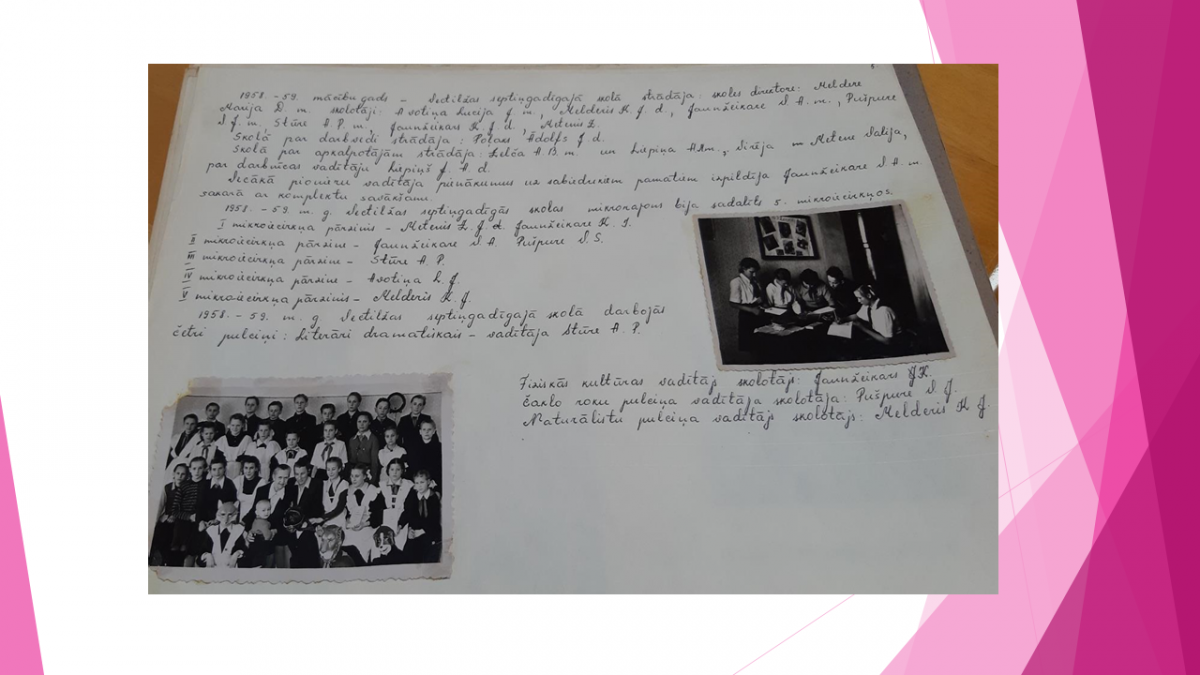 1958. - 59. mācību gads - Tectilžas septiņgadīgajā skolā strādāja: skolas directore: Meldere
Marija D m. skolotāji: Avotiņa Lucija J m., Melderis K. J. d., Jaunžeikare T A. m., Pušpure
T. J. m. Stūre A. P. m., Jaunžeikars K. J. d., Metenis Z.
Skolā par darbvedi strādāja: Polans Adolfs J d.
Skolā par apkalpotājām strādāja: A. B. m. un Liepiņa m Metene Dalija,
par darbnīcas vadītāju Liepiņš J. A. d.
Vecākā pionieru vadītāja pienākumus uz sabiedriskiem pamatiem izpildīja Jaunžeikare T. A. m.
sakarā ar komplektu savākšanu.
1958. - 59. m. g. Tectilžas septiņgadīgās skolas mikrorajons bija sadalīts 5. mikroiecirkņos.
I mikroiecirkņa pārzinis - Metenis Z. J. d. Jaunžeikare K. J.
II mikroiecirkņa pārzine - Jaunžeikare T. A. Pušpure T. J.
III mikroiecirkņa pārzine - Stūre A. P.
IV mikroiecirkņa pārzine - Avotiņa L. J.
V mikroiecirkņa pārzinis - Melderis K. J.
1958. - 59. m. g Tectilžas septiņgadīgajā skolā darbojās
četri pulciņi: Literāri dramatiskais - vadītāja Stūre A. P.
Fiziskās kultūras vadītājs skolotājs: Jaunžeikars K.
Čaklo roku pulciņa vadītāja skolotāja: Pušpure T. J.
Naturālistu pulciņa vadītājs skolotājs: Melderis K J.